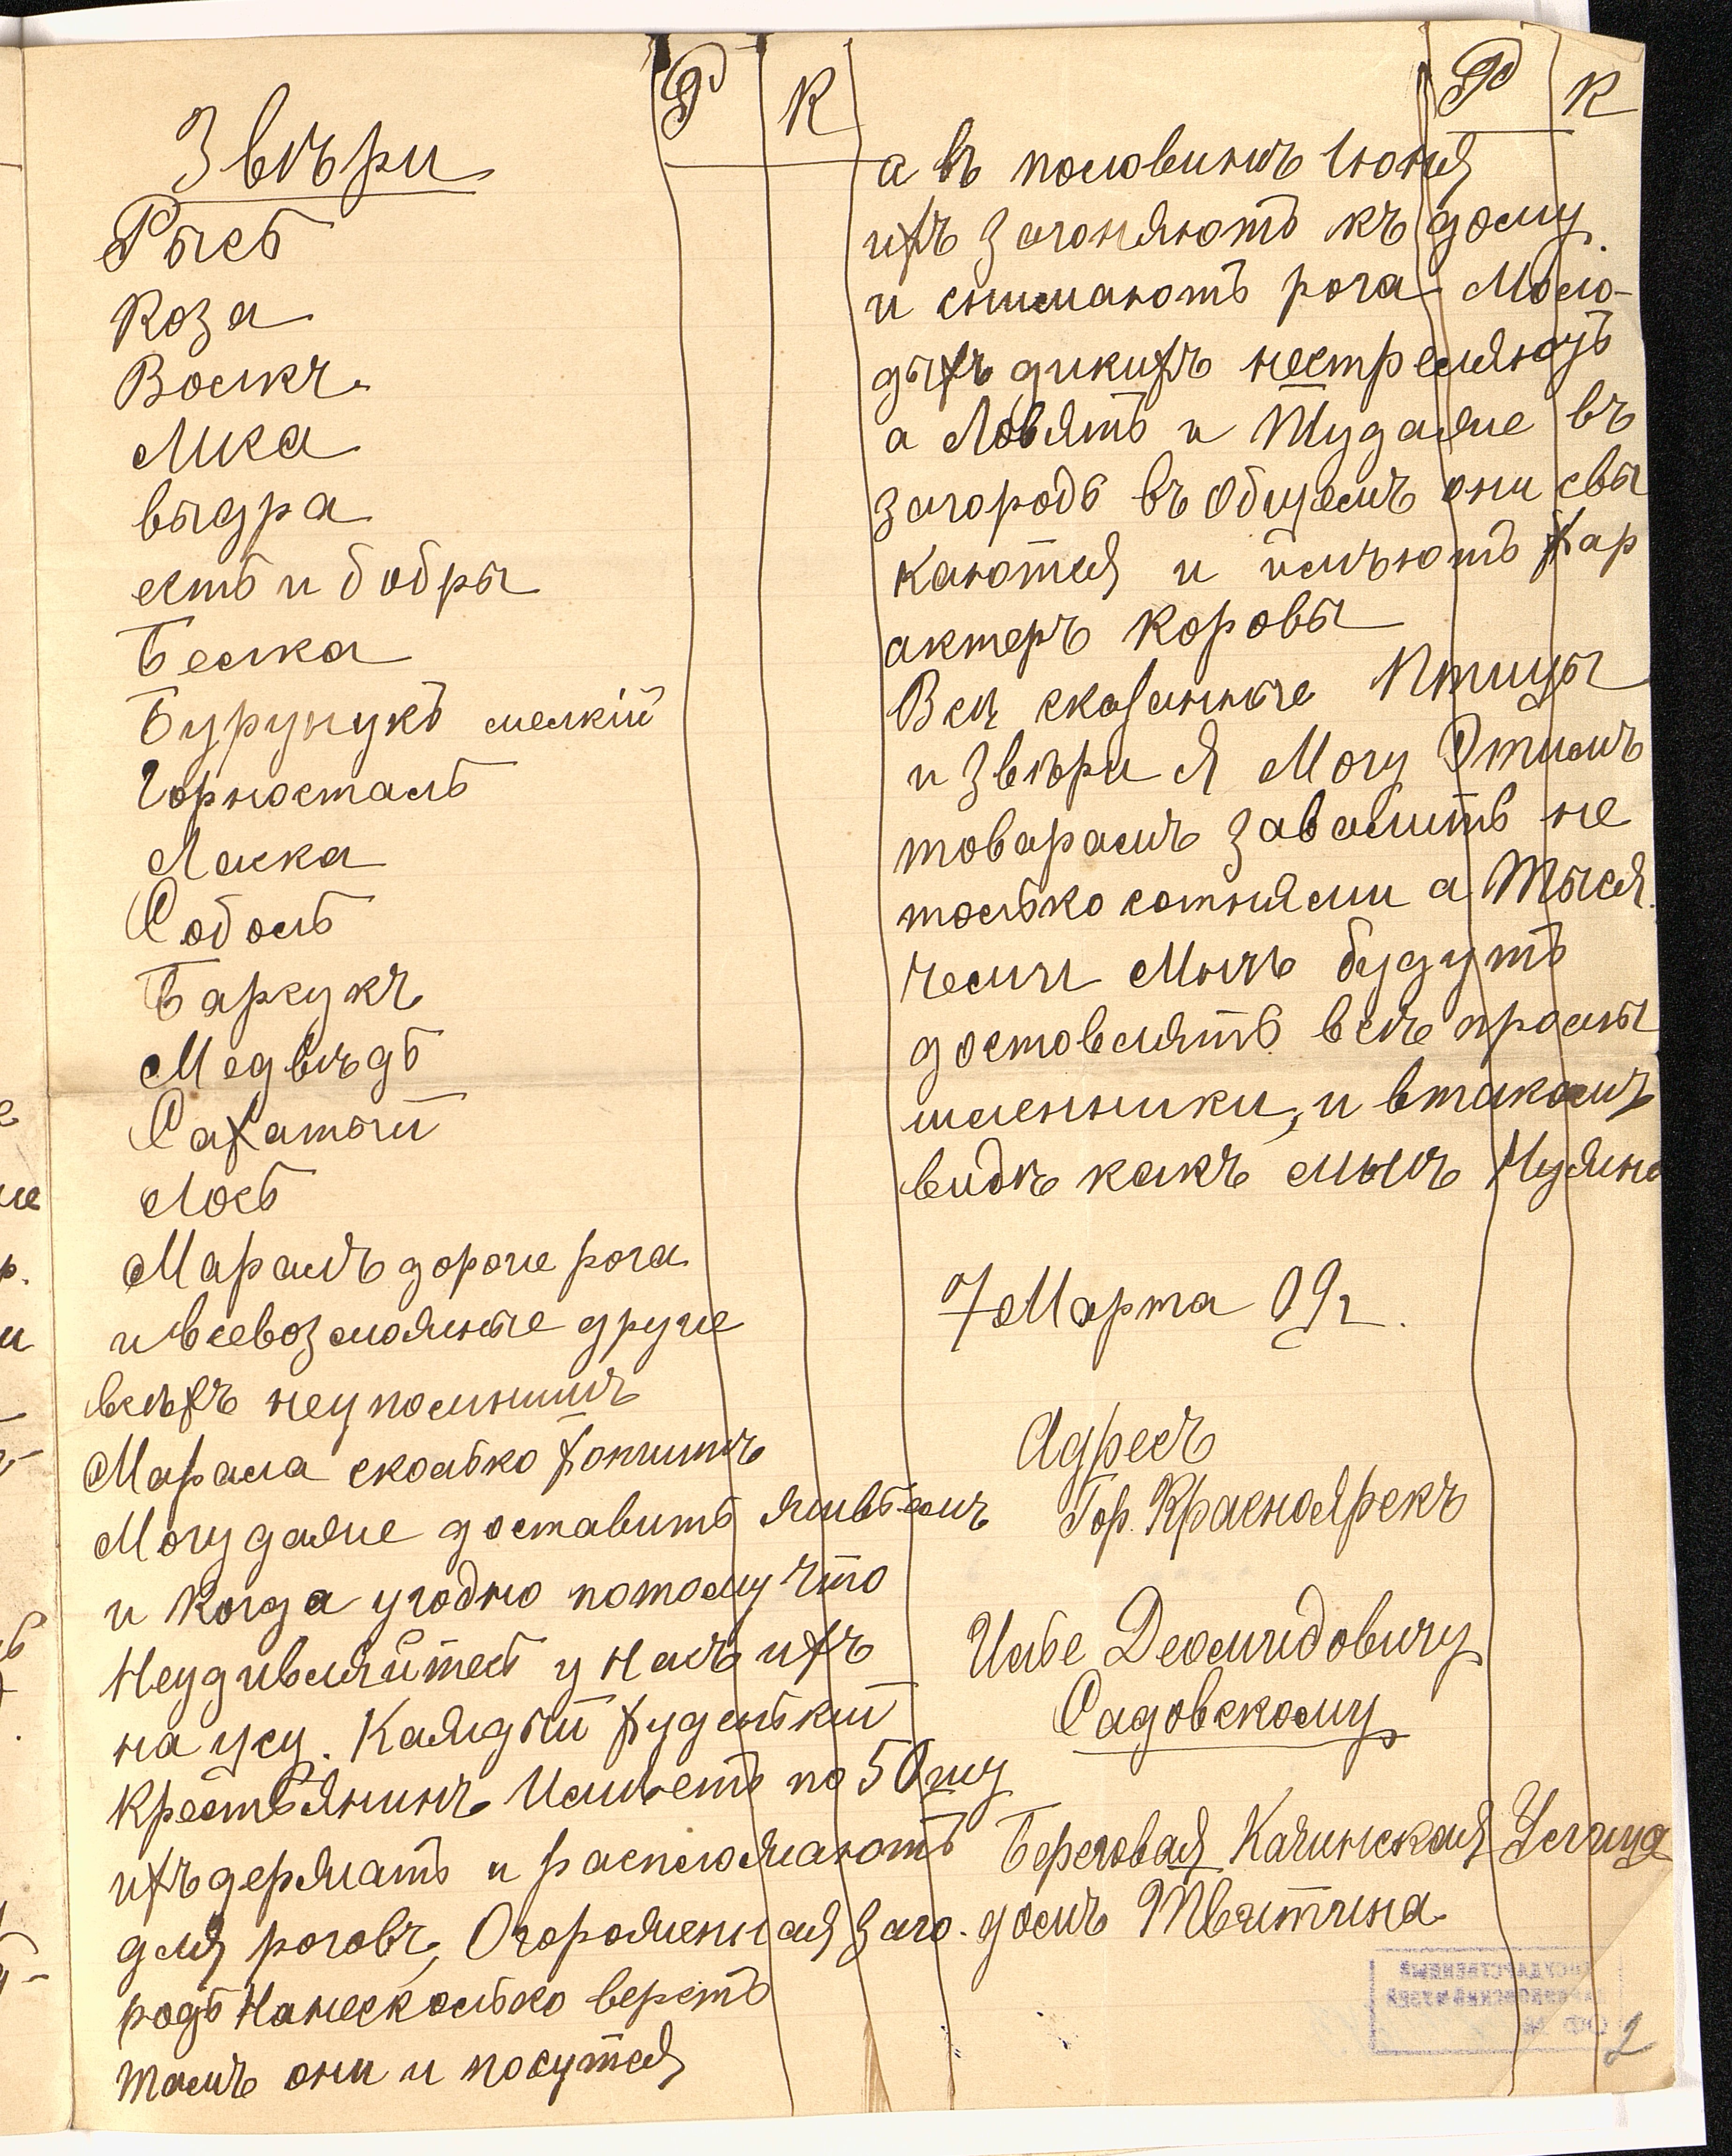 Р К
Звѣри
Рысь
Коза
Волкъ
Лиса
выдра
есть и бобры
Белка
Бурунукъ мелкій
Горносталь
Ласка
Соболь
Барсукъ
Медвѣдь
Сахатый
Лось
Маралъ дороге рога
и всевозможные друге
всѣхъ неупомнишъ
Марала сколько хотитѣ
Могу даже доставить живьемъ
и Когда угодно потому что
Неудивляйтесь у Насъ ихъ
на усу. Каждый худенький
крестьянинъ Имѣетъ по 50 шу
ихъ держатъ и распложаютъ
для роговъ, Огороженная заго-
родь Нанесколько верстъ
тамъ они и посутся
Р К
а въ половинѣ Іюня
ихъ загоняютъ къ дому.
и снимаютъ рога Моло-
дыхъ дикихъ нестреляютъ
а Ловятъ и Туда же въ
загородь въ Общемъ они свы
каются и имѣютъ хар
актеръ коровы
Все сказанные Птицы
и Звѣри я Могу Этимъ
товарамъ завалить не
только сотнями а Тыся.
чеми Мнѣ будутъ
достовлять все промы
шленники, и втакомъ
видѣ какъ мнѣ Нужно
7 Марта 09 г.
Адресъ
Гор. Красноярскъ
Илье Демидовичу
Садовскому
Береговая Качинская Улица
домъ Тветтина
2